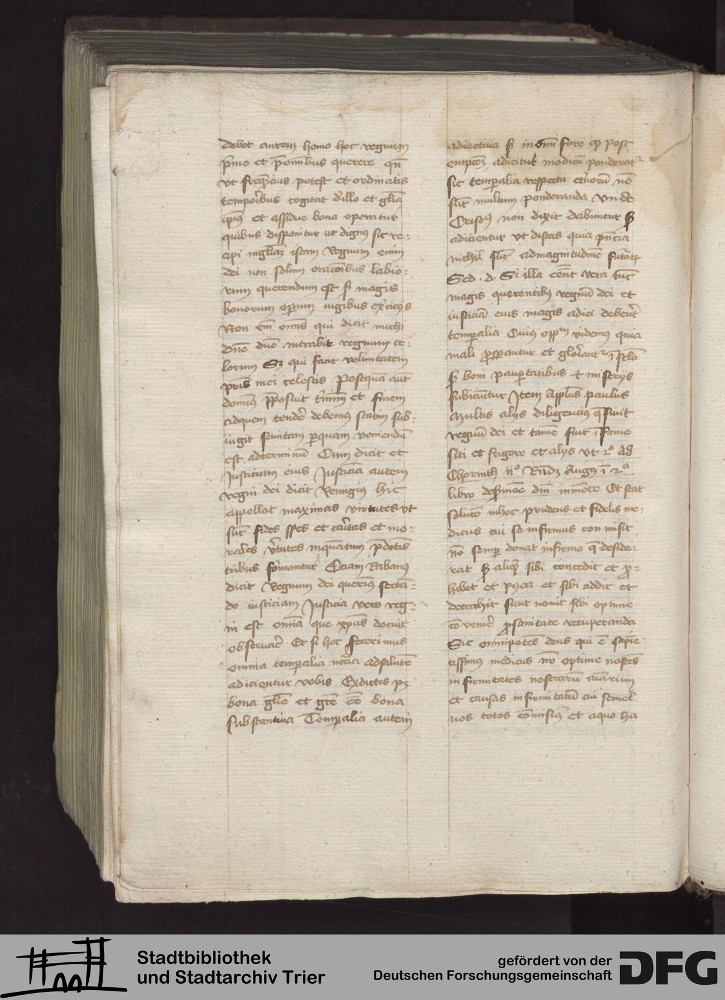 debet autem homo hoc regnum
p̄mo et p̄omibus querere qn̄
ut potest et ordinatis
temporibus cogitat d'illo et glīa
ipius et assidue bona operatur
quibus disponitur ut dignus sit re-
cipi in glīam istam Regnum enim
dei non solum oracōibus labio-
rum querendum est sz magis
bonorum operum iugibus exercicijs
Non em̄ omīs qui dicit michi
dn̄e dn̄e intrabit regnum ce-
lorum Sz qui facit voluntatem
pr̄is mei celestis Postquam aūt
dominus p̄posuit et finem
ad quem tendere debemus statim sub-
iungit semitam per quam veniendū
est ad terminū Cum dicit et
Justiciam eius Justiciā autem
regni dei dicit Remigius hic
appellat maximas virtutes ut
sūt fides spes et caritas et mo-
rales virtutes inquantum p̄dictis
tribus formantur Eciam Urbanus
dicit Regnum dei querim9 secūn-
do iusticiam Justicia vero reg-
ni est omīa que xp̄us docuit
observare Et si hoc fecerimus
omnia temporalia nobis ad salutē
adicientur vobis Ex dictis pz
bona glīe et grē eē bona
substantiva Temporalia autem
adiectiva sz in om̄i foro qz post
empcōem adicitur modicū ponderatr
sic temporalia respectu eternorū nō
sūt multum ponderanda Unde
Crisus non dixit dabuntur sz
adicientur ut discas quia p̄ncia
nichil sūt ad magnitudinē futuror
Sed d. Si illa eēnt vera tūc
magis querentibus regnū dei et
iusticiā eius magis adici deberēt
temporalia Cuius opp̄m videmus quia
mali p̄sperantur et gloriantr ī sc̄lo
sz boni paupertatibus et miserijs
subiciuntur Item Apl̄us paulus
Multis alijs diligencius quesiuit
regnū dei et tamē fuit ī fame
siti et frigore et alijs ut 2ᵃ Ad
Chorinth Rn̄dz Augus ī 2ᵒ
libro de s̄mōe dn̄i in mōte Et stat
solucō in hoc prudens et fidelis me-
dicus cui se infirmus commisit
nō semper donat infirmo que deside-
rat sz aliqn̄ sibi concedit et p̄-
hibet et ponit et sibi addit et
detrahit sicut novit sibi optime
cōvenire p̄ sanitate recuperanda
Sic omnipotens deus qui ē sapien-
tissimus medicus nr̄ optime noscens
infirmitates nostrarum animarum
et causas infirmitatū cui semel
nos totos cōmisim9 et a quo ha
Stadtbibliothek
und Stadtarchiv Trier
gefördert von der
Deutschen Forschungsgemeinschaft
DFG